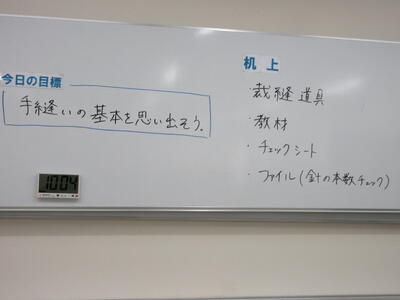 今日の目標
手縫いの基本を思い出そう。
10:04
机上
・裁縫道具
・教材
・チェックシート
・ファイル(針の本数チェック)